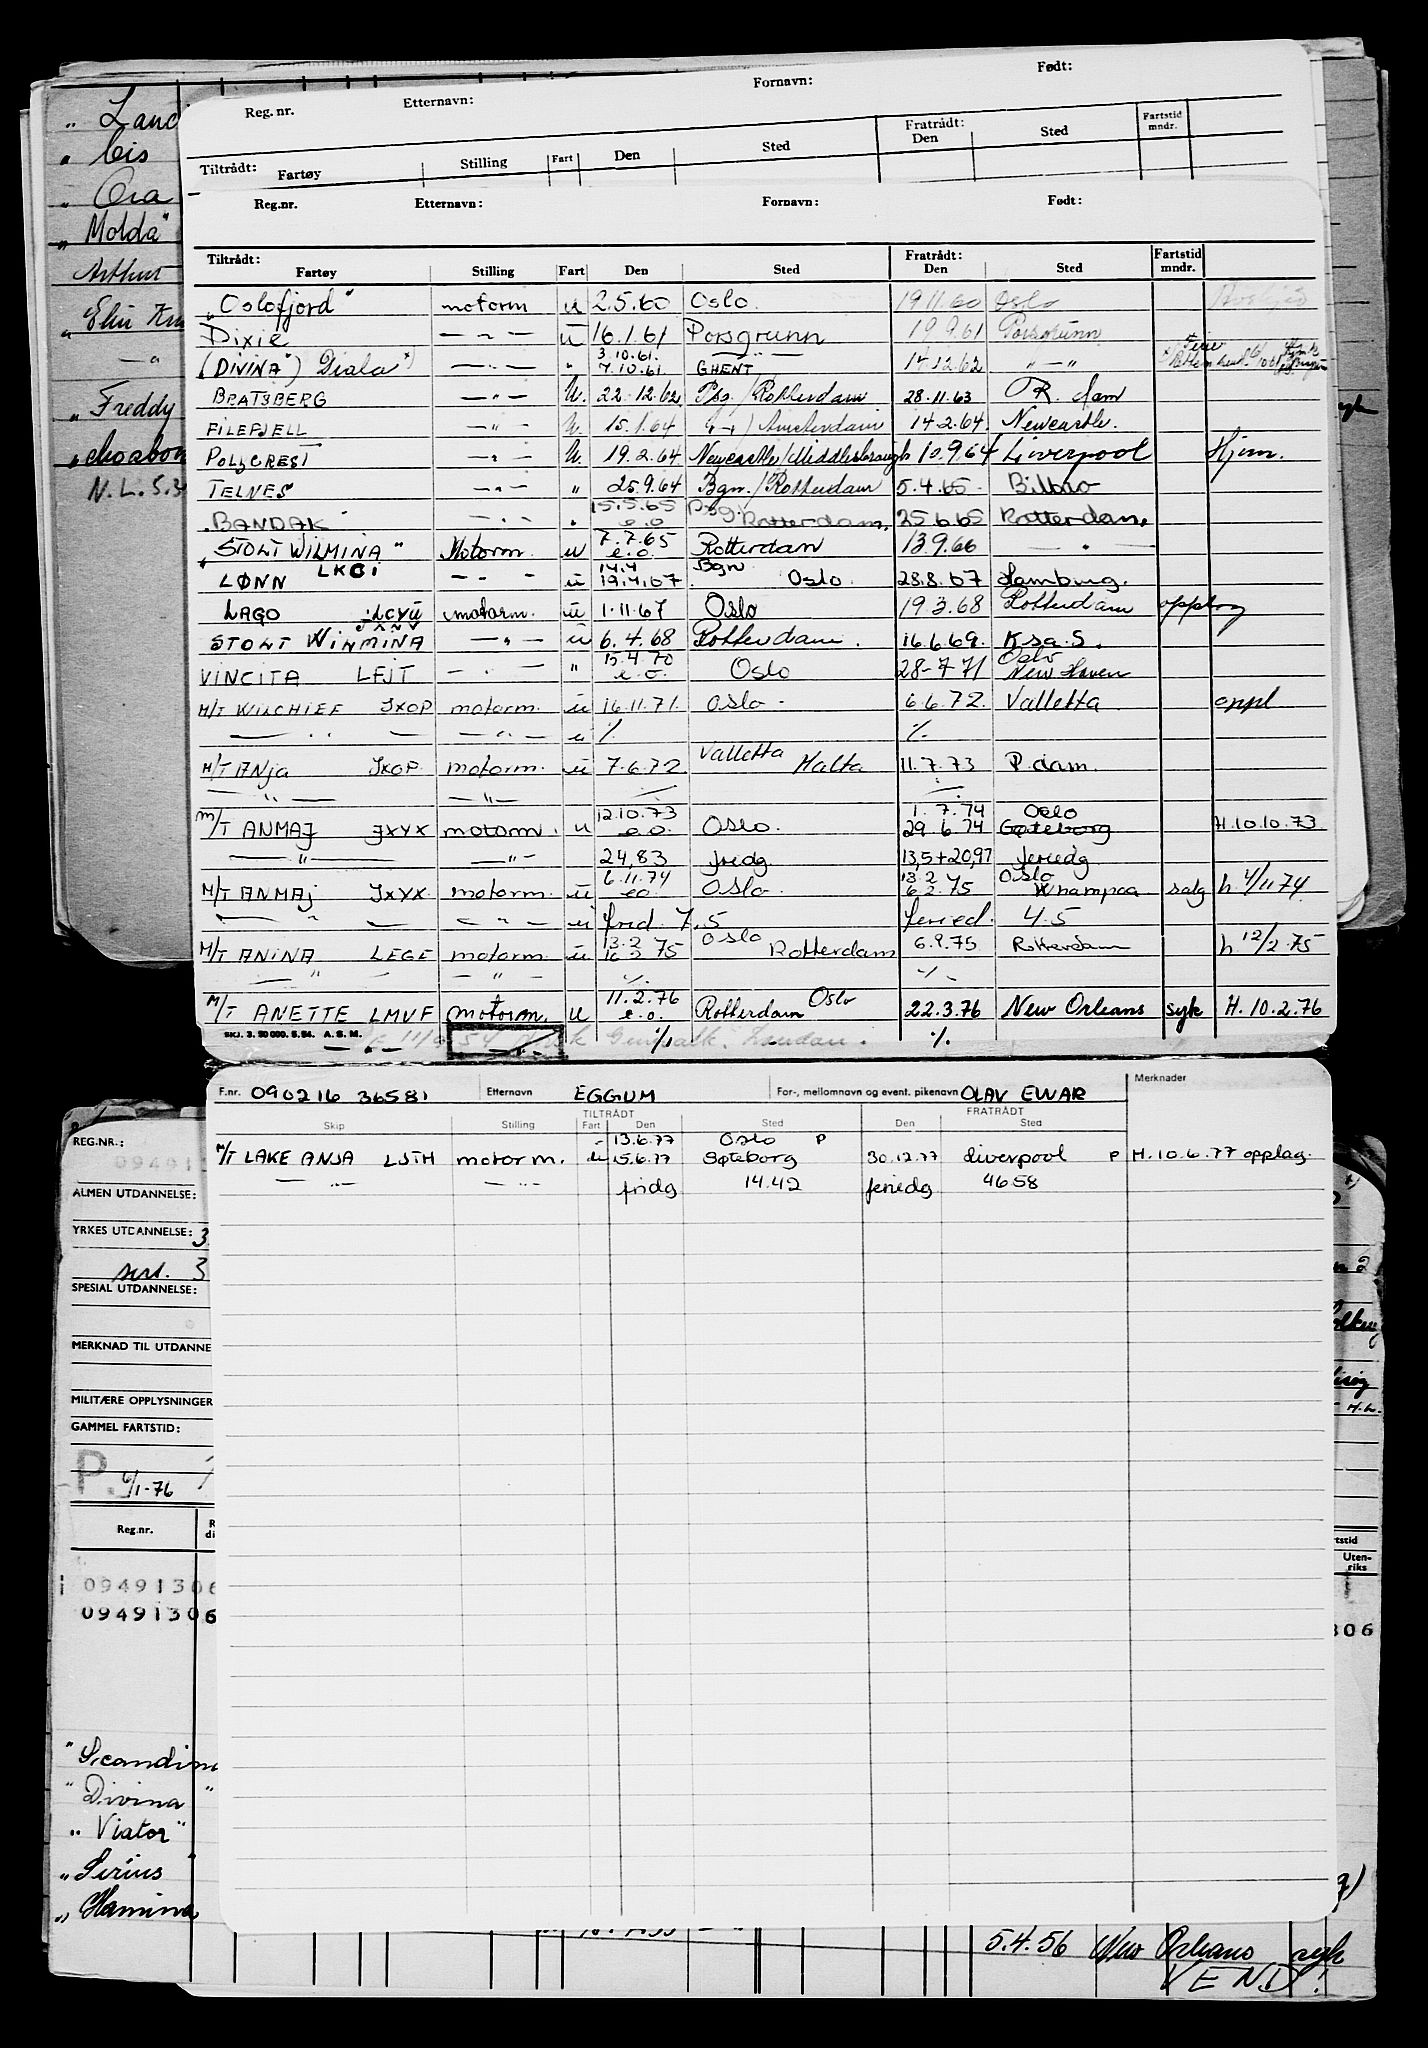 Reg. nr. Etternavn: Fornavn: Født:
Tiltrådt: Fartøy Stilling Fart Den Sted Fratrådt: Den Sted Fartstid mndr.
Reg.nr. Etternavn: Fornavn: Født:
Tiltrådt: Fartøy Stilling Fart Den Sted Fratrådt: Den Sted Fartstid mndr.
„Oslofjord" motorm u 2.5.60 Oslo. 19.11.60 Oslo
Dixie — „ — u 16.1.61 Porsgrunn 19.9.61 Porsgrunn
3.10.61. — „ —
(DIVINA") Diala") — „ — „ 7.10.61 GHENT 14.12.62 — „ —
BRATSBERG — „ — U. 22.12.62 Psg./Rotterdam 28.11.63 R. dam
FILEFJELL — „ — U. 15.1.64 — „ —/Amsterdam 14.2.64 Newcastle.
POLYCREST — „ — U. 19.2.64 Newcastle/Middlesbrough 10.9.64 Liverpool Hjem.
TELNES — „ — „ 25.9.64 Bgn./Rotterdam 5.4.65 Bilbao
15.5.65 Psg
BANDAK — „ — „ e.o Rotterdam, 25.6.65 Rotterdam,
7.7.65
„STOLT WILMINA" Motorm. u e.o. Rotterdam 13.9.66 — „ —
14.4 Bgn
LØNN LKCI — „ — u 19.4.67 Oslo. 28.8.67 Hamburg.
LAGO LCYU motorm. u 1.11.67 Oslo 19.3.68 Rotterdam opplag
STOLT WILMINA — „ — u 6.4.68 Rotterdam. 16.6.69. K.sa.S.
15.4.70 Oslo
VINCITA LFJT — „ — „ e.o. Oslo 28-7 71 New Haven
M/T WILCHIEF JXOP motorm. u 16.11.71. Oslo 6.6.72. Valletta oppl
— „ — — „ — u ./. ./.
M/T ANJA JXOP motorm. u 7.6.72 Valletta Malta 11.7.73 R.dam.
— „ — — „ — ./. ./.
12.10.73 1.7.74 Oslo
M/T ANMAJ JXYX motorm. u e.o. Oslo. 29.6.74 Gøteborg H.10.10.73
— „ — — „ — 24,83 fredg. 13,5+20,97 feriedg
6.11.74 13.2 Oslo
M/T ANMAJ JXYX. motorm. u eo. Oslo. 6.2.75 Whampoa salg h 4/11 74
— „ — — „ — u frid. 7.5 feried. 4.5
13.2 Oslo
M/T ANINA LEGE motorm. u 75 Rotterdam 6.9.75 Rotterdam h 12/2 75
— „ — — „ — ./. ./.
11.2.76 Oslo
M/T ANETTE LMVF motorm. u e.o. Rotterdam 22.3.76 New Orleans syk H. 10.2.76
SKJ. 3. 50 000. 5. 54. A. S. M. ./. ./.
F.nr. 090216 36581 Etternavn EGGUM For-, mellomnavn og event. pikenavn OLAV EWAR Merknader
TILTRÅDT FRATRÅDT
Skip Stilling Fart Den Sted Den Sted
13.6.77 Oslo P
M/T LAKE ANJA LJTH motorm. u 15.6.77 Gøteborg 30.12.77 Liverpool P H.10.6.77 opplag.
— „ — — „ — fridg 14.42 feriedg 46.58
„ Cis
„ Ora
„ Molda"
Arthur
„ Freddy
N.L.S.
REG.NR.:
09491
ALMEN UTDANNELSE:
YRKES UTDANNELSE: 3
3
SPESIAL UTDANNELSE:
MERKNAD TIL UTDANNE
MILITÆRE OPPLYSNINGER
GAMMEL FARTSTID:
P. 6/1-76
Reg.nr.
09491306
09491306
rtstid
Uten-
riks
306
"Scandina
"Divina"
„Viator"
„Sirius"
„Hamina
5.4.56 New Orleans syk
VEND!